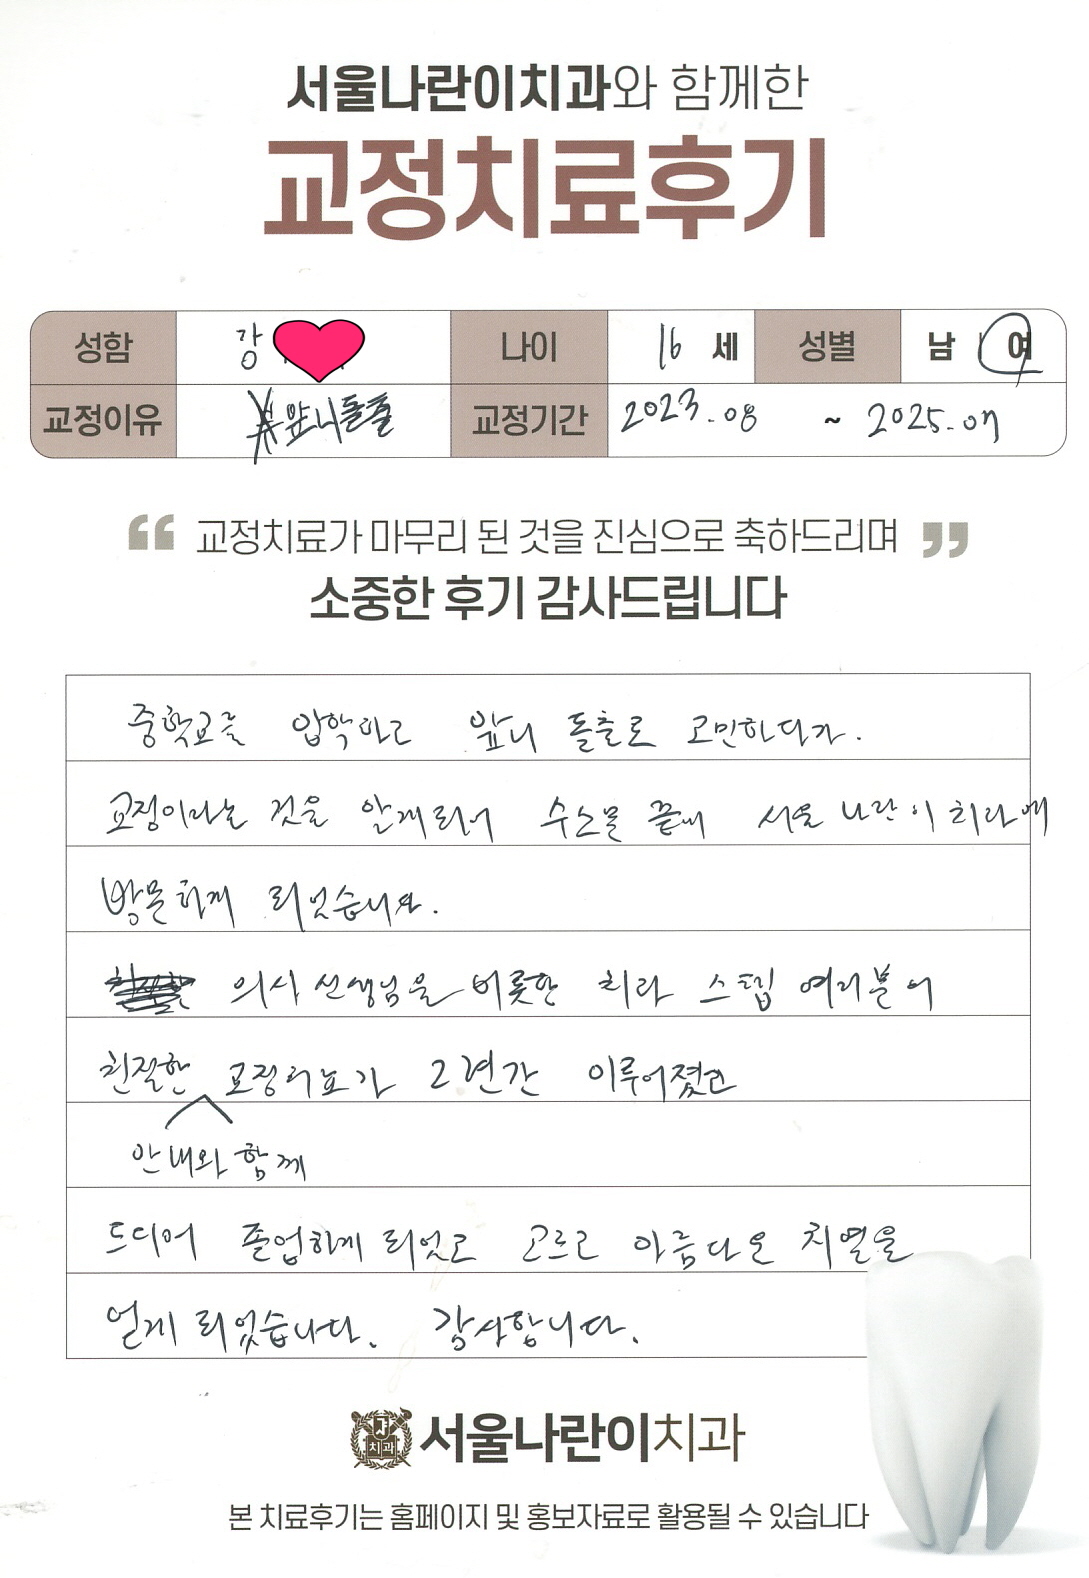 서울나란이치과와 함께한
교정치료후기
성함 강 나이 16 세 성별 남 여
교정이유 앞니돌출 교정기간 2023.08 ~ 2025.07
“ 교정치료가 마무리 된 것을 진심으로 축하드리며 ”
소중한 후기 감사드립니다
중학교를 입학하고 앞니 돌출로 고민하다가.
교정이라는 것을 알게되어 수소문 끝에 서울 나란이 치과에
방문하게 되었습니다.
의사 선생님을 비롯한 치과 스텝 여러분의
친절한 교정치료가 2년간 이루어졌고
안내와 함께
드디어 졸업하게 되었고 고르고 아름다운 치열을
얻게 되었습니다. 감사합니다.
치과
서울나란이치과
본 치료후기는 홈페이지 및 홍보자료로 활용될 수 있습니다